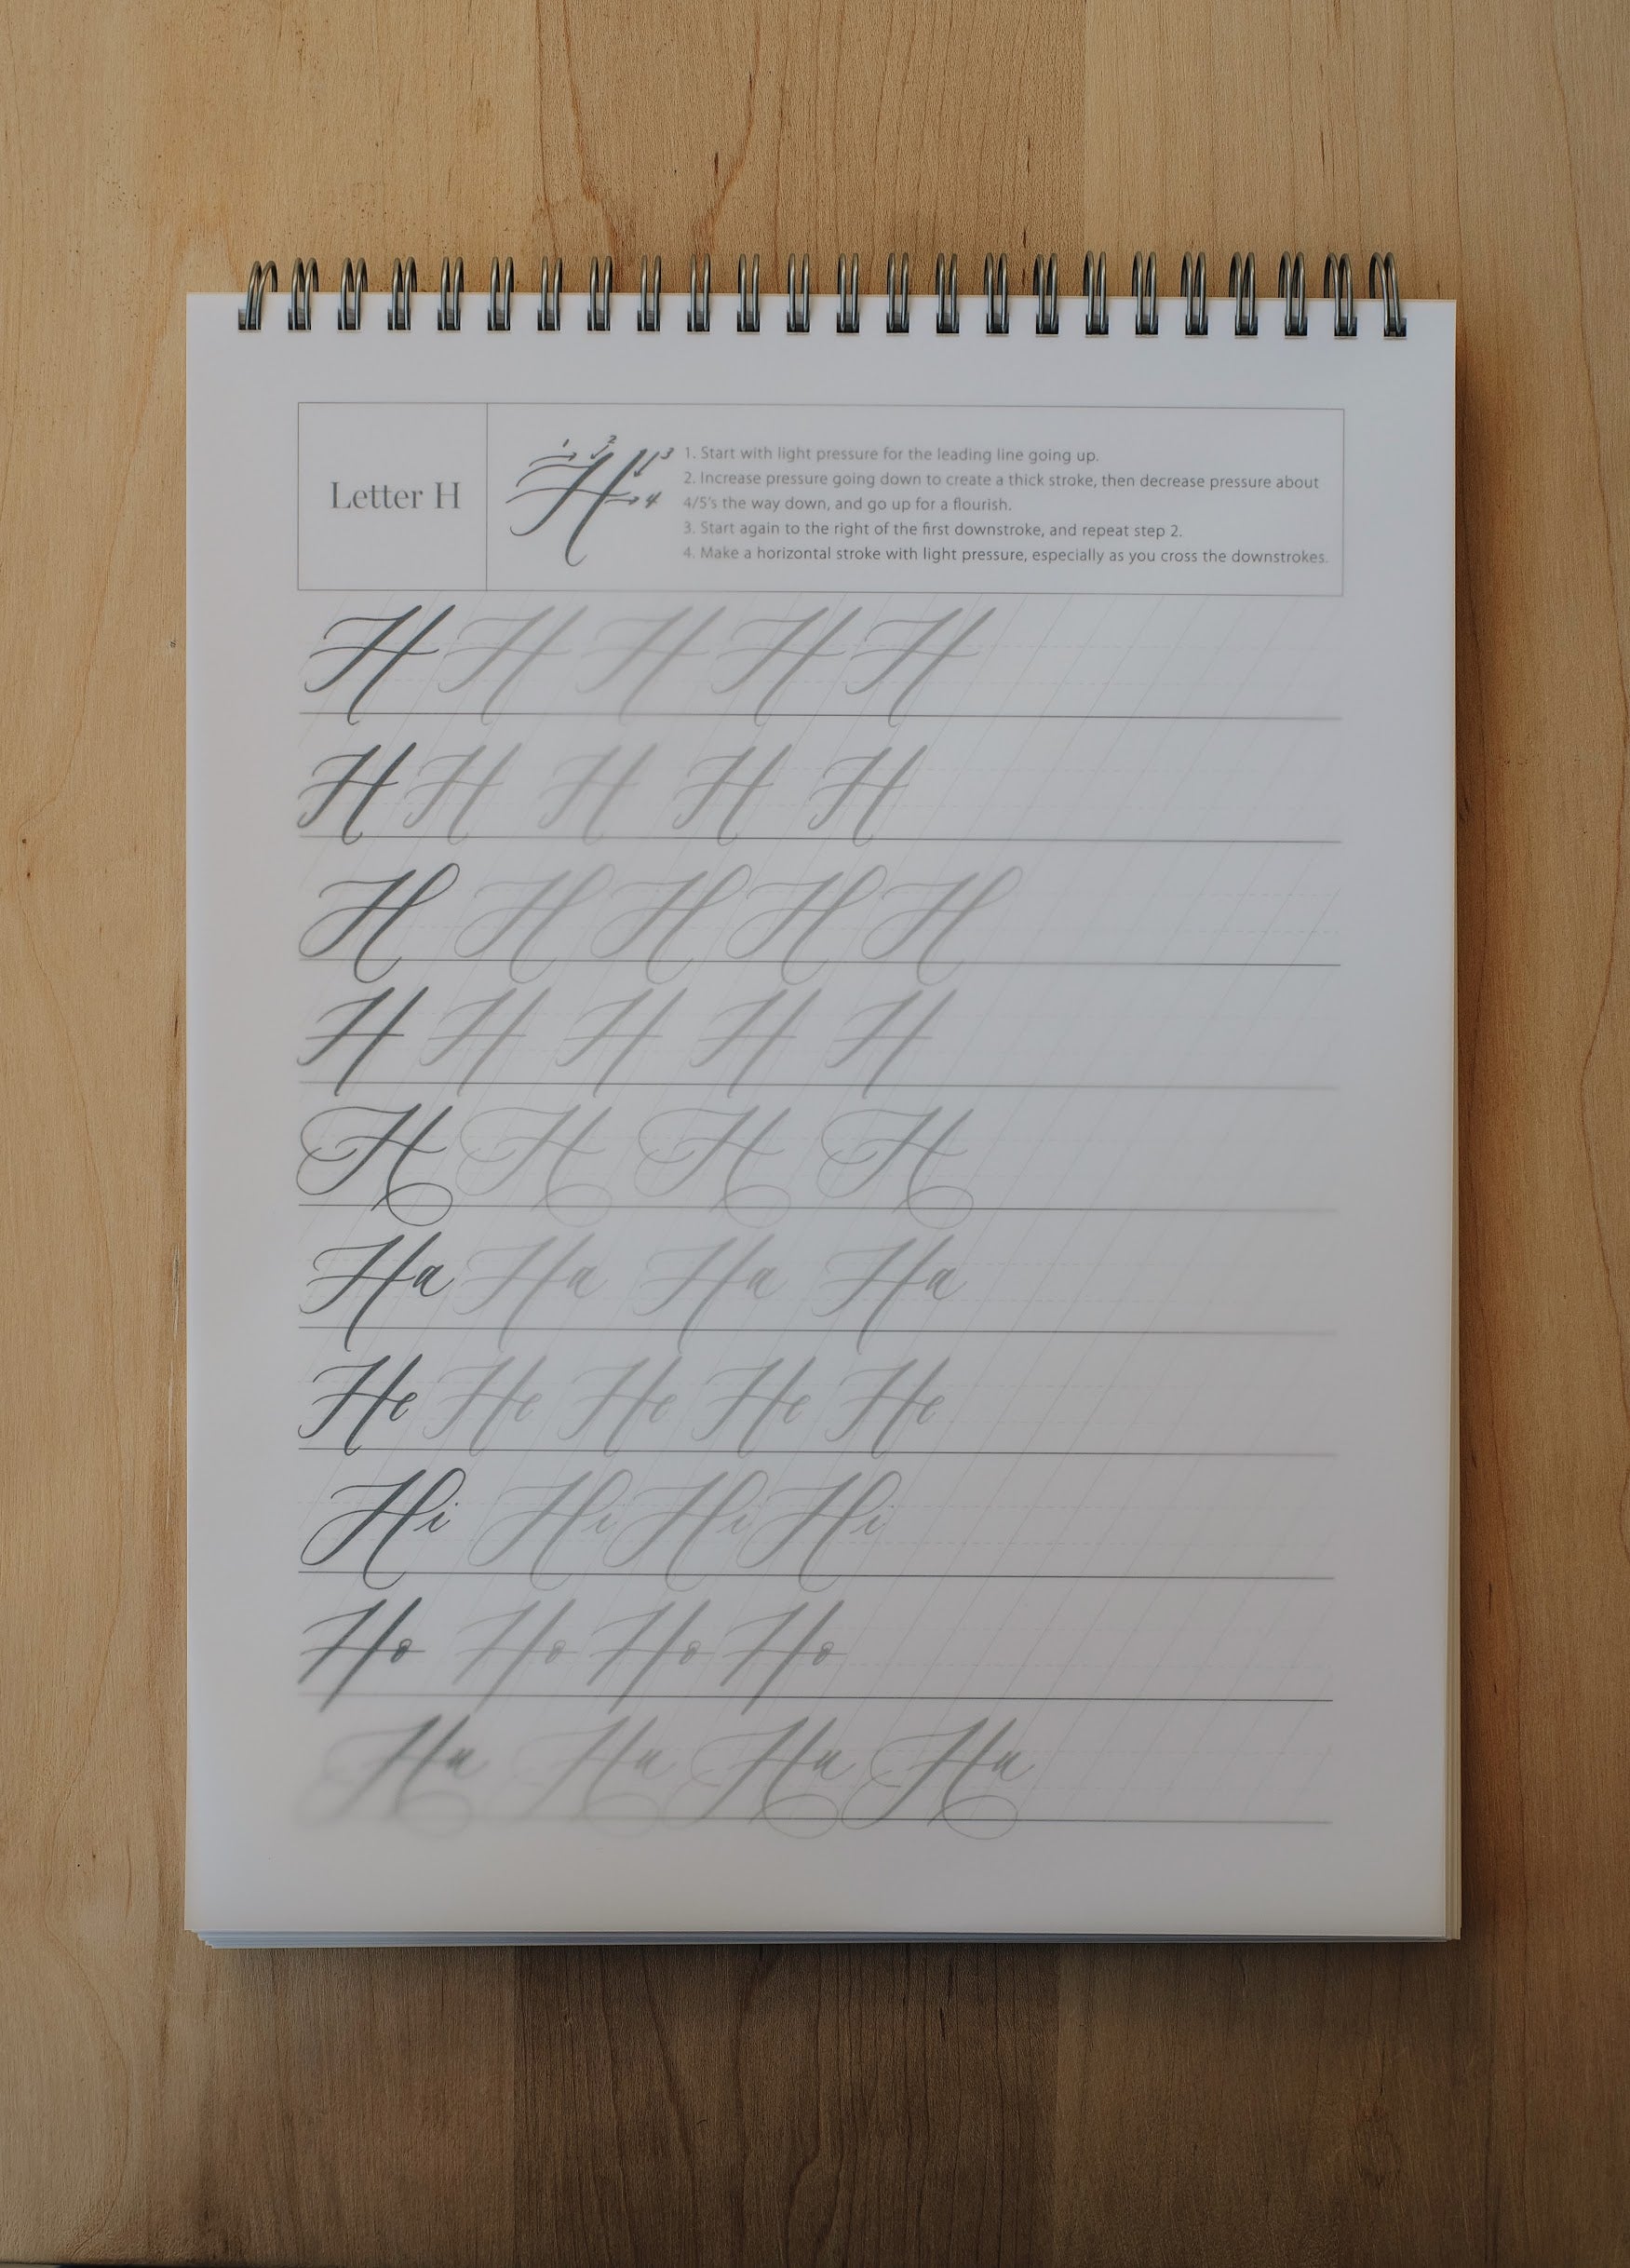 Letter H
1 2 3 4
1. Start with light pressure for the leading line going up.
2. Increase pressure going down to create a thick stroke, then decrease pressure about
4/5's the way down, and go up for a flourish.
3. Start again to the right of the first downstroke, and repeat step 2.
4. Make a horizontal stroke with light pressure, especially as you cross the downstrokes.
H H H H H
H H H H H
H H H H H
H H H H H
H H H H
Ha Ha Ha Ha
He He He He He
Hi Hi Hi Hi
Ho Ho Ho Ho
Hu Hu Hu Hu